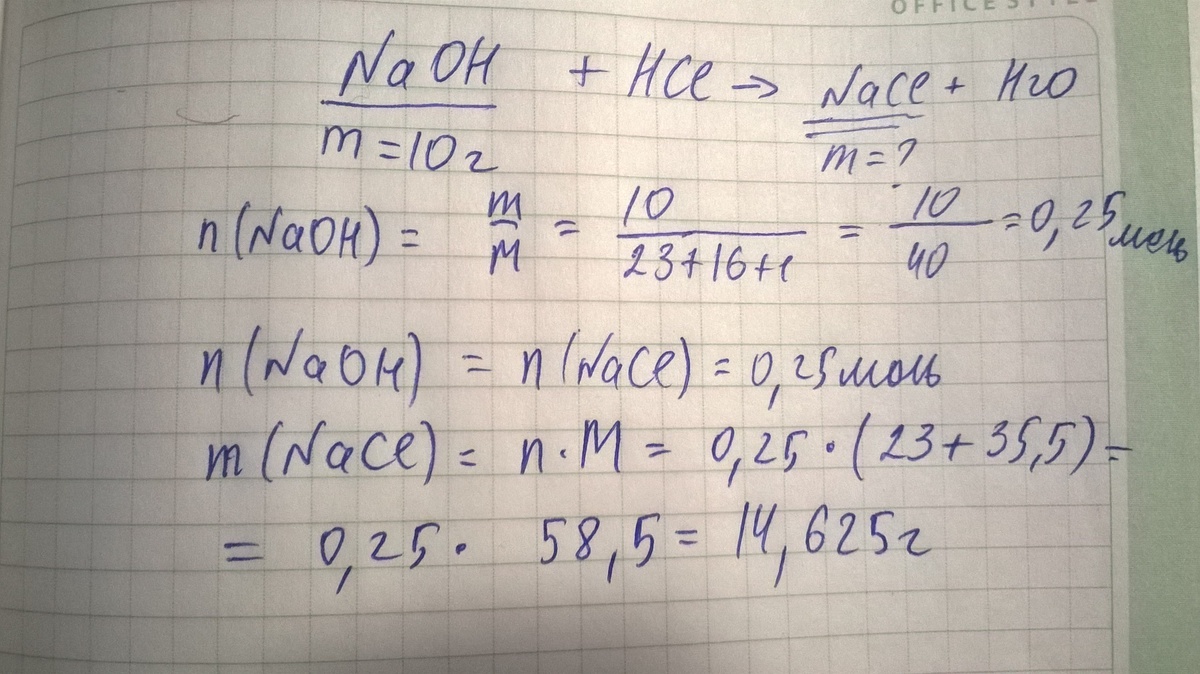 OFFICE STYLE
NaOH + HCl → NaCl + H2O
m=10г m=?
n(NaOH) = m/M = 10/(23+16+1) = 10/40 = 0,25 моль
n(NaOH) = n(NaCl) = 0,25 моль
m(NaCl) = n·M = 0,25·(23+35,5) =
= 0,25· 58,5 = 14,625г